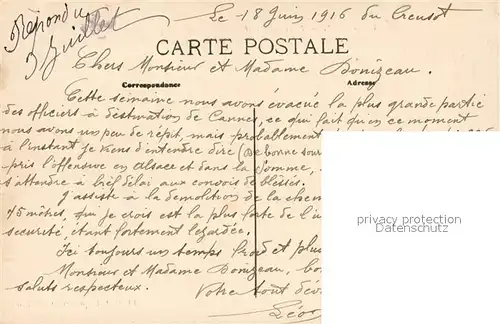 Répondu
3 Juillet
Le 18 Juin 1916 du Creusot
CARTE POSTALE
Chers Monsieur et Madame Donizeau.
Correspondance
Adresse
Cette semaine nous avons évacué la plus grande partie
des officiers à destination de Cannes, ce qui fait qu'en ce moment
nous avons un peu de répit, mais probablement
à l'instant je viens d'entendre dire (De bonne sour
pris l'offensive en Alsace et dans la Somme,
s'attendre à bref délai aux convois de blessés.
J'assiste à la demolition de la chem
45 mètres, qui je crois est la plus forte de l'u
privacy protection
securité étant fortement lezardée.
Ici toujours un temps froid et plu
Monsieur et Madame Donizeau, bo
saluts respecteux.
Votre tout dév
Léon